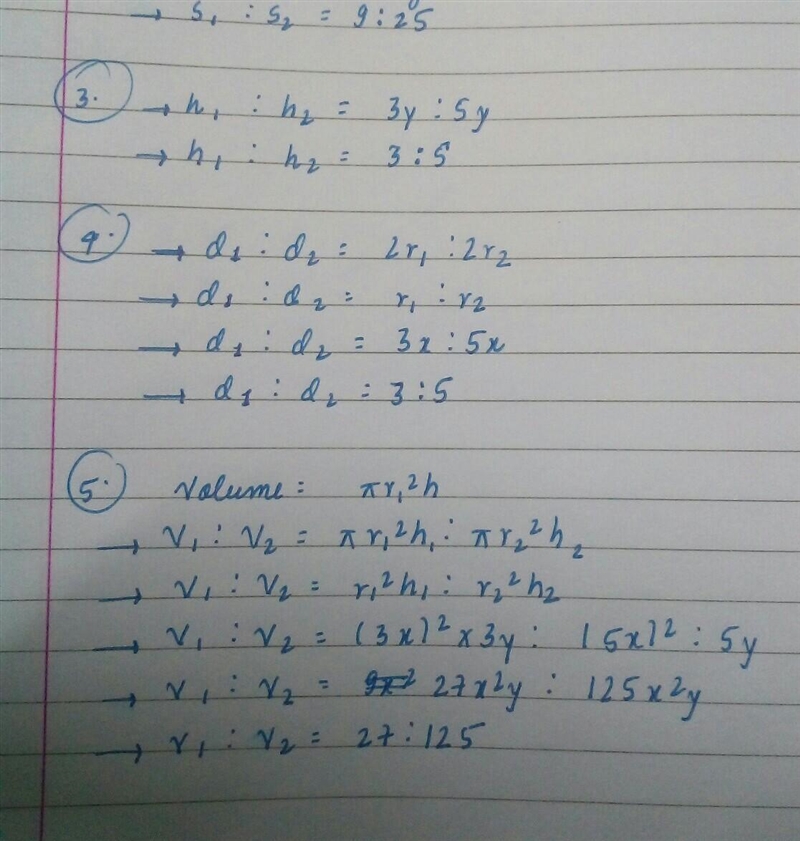 → s₁ : s₂ = 9:25
3. → h₁ : h₂ = 3y : 5y
→ h₁ : h₂ = 3 : 5
4. → d₁ : d₂ = 2r₁ : 2r₂
→ d₁ : d₂ = r₁ : r₂
→ d₁ : d₂ = 3x : 5x
→ d₁ : d₂ = 3 : 5
5. Volume = πr₁²h
→ V₁ : V₂ = πr₁²h₁ : πr₂²h₂
→ V₁ : V₂ = r₁²h₁ : r₂²h₂
→ V₁ : V₂ = (3x)² × 3y : (5x)² : 5y
→ V₁ : V₂ = 27x²y : 125x²y
→ V₁ : V₂ = 27 : 125